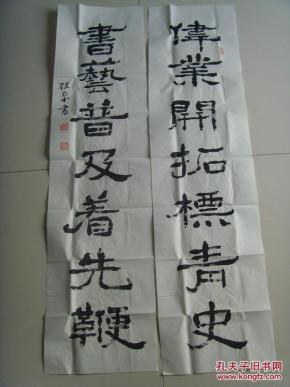 偉業開拓標青史
書藝普及着先鞭
孔夫子旧书网